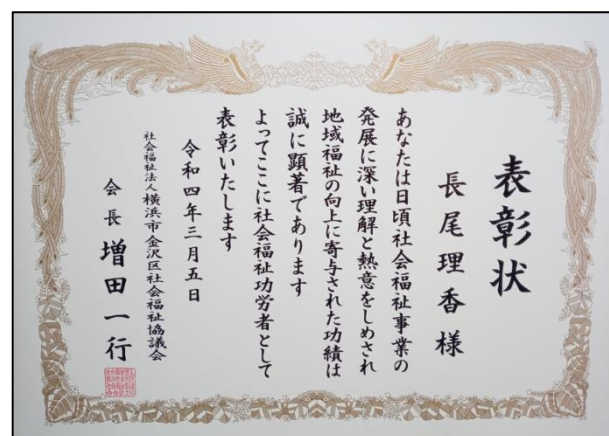 表彰状
長尾理香様
あなたは日頃社会福祉事業の
発展に深い理解と熱意をしめされ
地域福祉の向上に寄与された功績は
誠に顕著であります
よってここに社会福祉功労者として
表彰いたします
令和四年三月五日
社会福祉法人横浜市金沢区社会福祉協議会
会長 増田一行